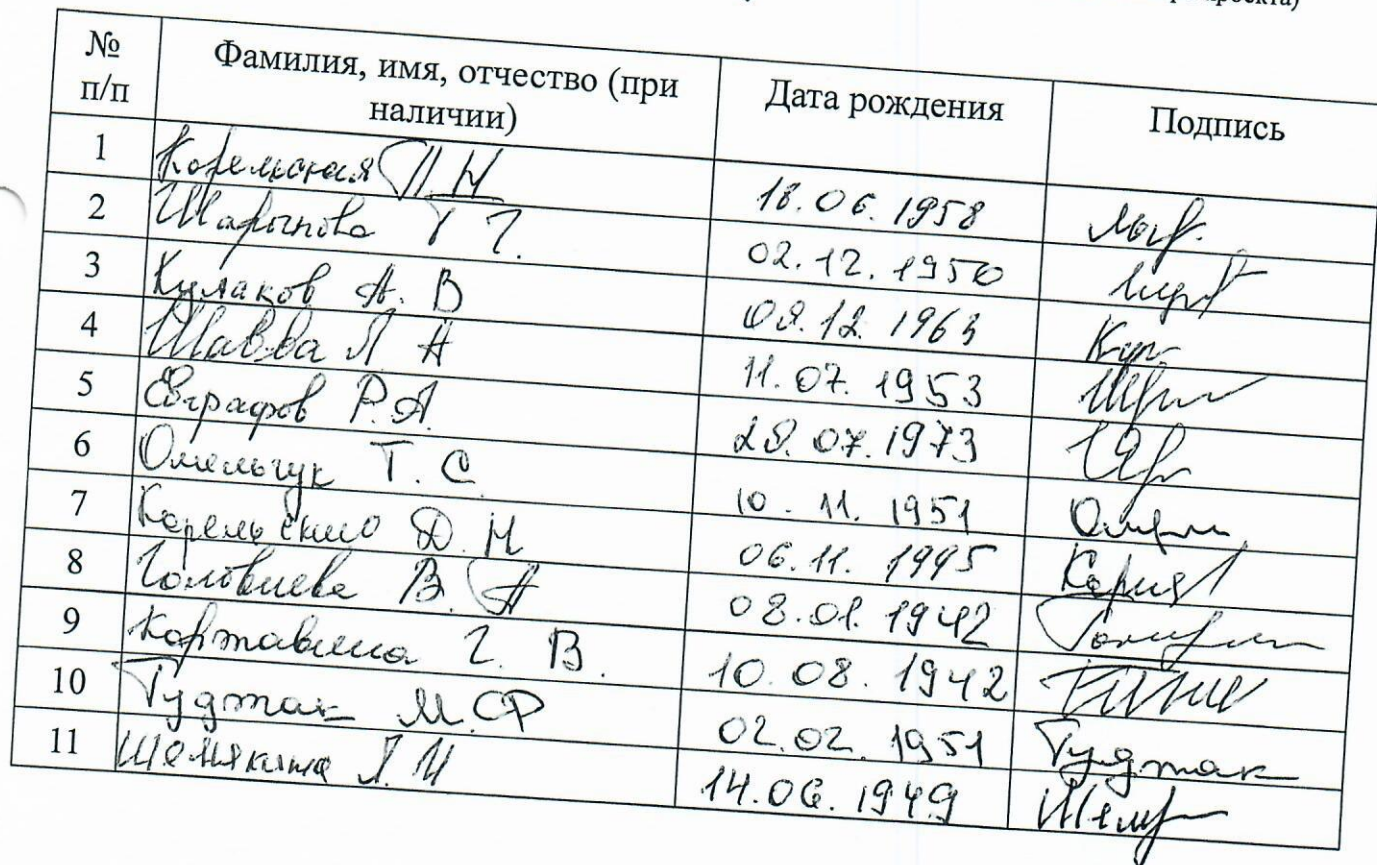 проекта)
№ п/п Фамилия, имя, отчество (при наличии) Дата рождения Подпись
1 Корельская Л Н 18.06.1958
2 Шарынова Т Г. 02.12.1950
3 Кулаков А. В 09.12.1963 Кул
4 Шавва Л А 11.07.1953
5 Евграфов Р.А. 28.07.1973
6 Омельчук Т. С. 10.11.1951
7 Д. Н 06.11.1995
8 В. А 08.01.1942
9 Кортавина Г. В. 10.08.1942
10 Гуджак М.Ф 02.02.1951 Гуджак
11 Шемякина Л. И 14.06.1949